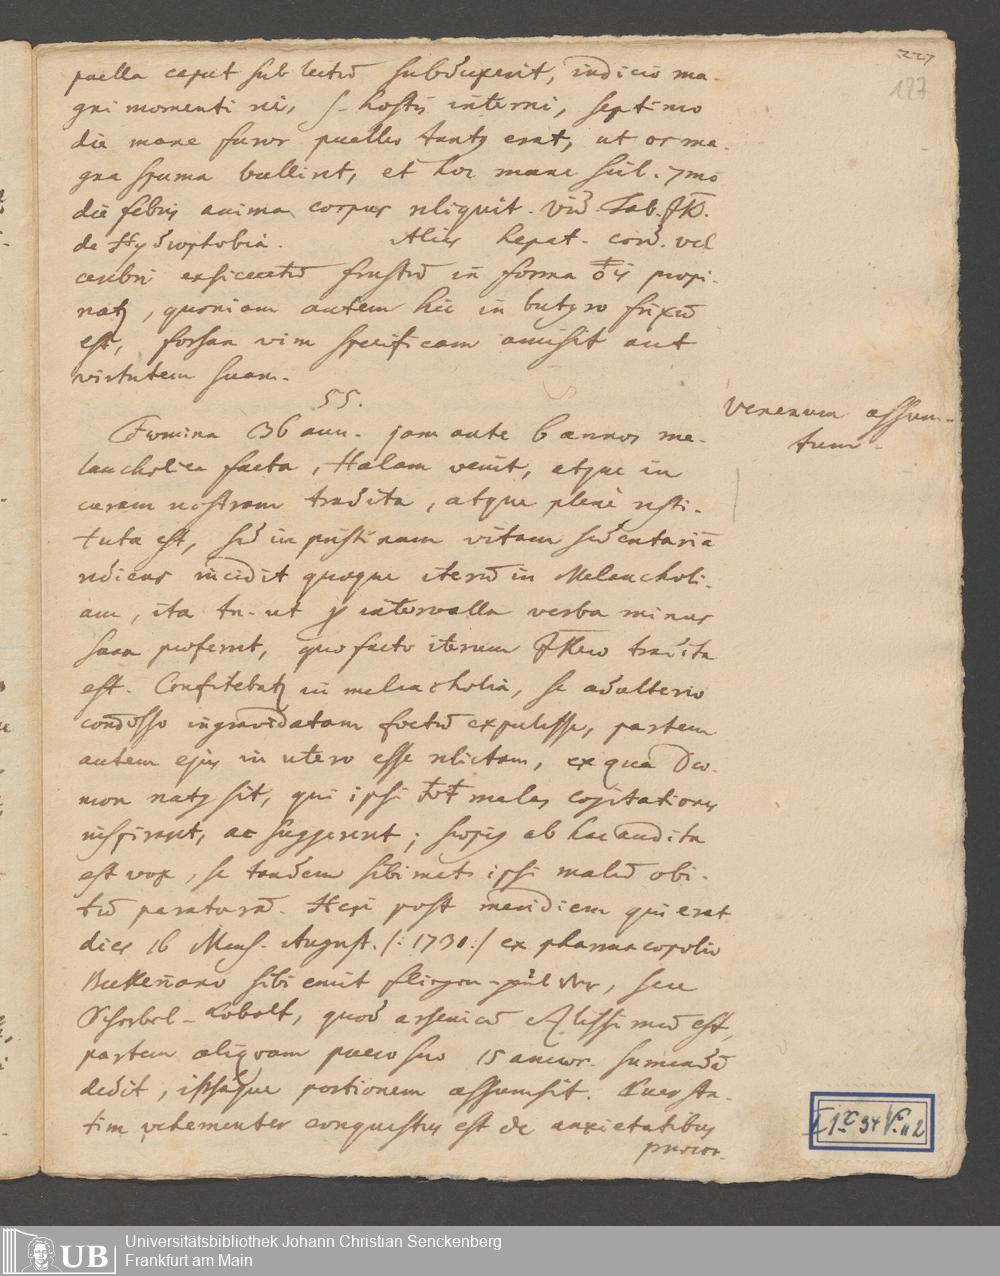 227
127
puella caput sub lectum subduxerit, indicio ma-
gni momenti rei, s. hostis interni, septimo
die mane furor puellae tantus erat, ut os ma-
gna spuma bulliret, et hoc mane scil. 7mo
die febris anima corpus reliquit. vid. Tab.
de Hydrophobia. Alias hepat. cord. vel
cerebri exsiccatum frustum in forma propi-
natur, quoniam autem hic in butyro frixum
est, forsan vim specificam amisit aut
virtutem suam.
55.
Foemina 36 ann. jam ante 6 annos me-
lancholica facta, Halam venit, atque in
curam nostram tradita, atque plene resti-
tuta est, sed in pristinam vitam sedentariam
rediens incidit quoque iterum in Melancholi-
am, ita tn. ut p intervalla verba minus
sana proferret, quo facto iterum tradita
est. Confitebatur in melancholia, se adulterio
commisso ingravidatam foetum expulisse, partem
autem ejus in utero esse relictam, ex qua Doe-
mon natus sit, qui ipsi tot malas cogitationes
inspiraret, ac suggereret; saepius ab hac audita
est vox, se tandem sibimet ipsi malum obi-
tum paraturam. Heri post meridiem qui erat
dies 16 Mens. August. /: 1730 :/ ex pharmacopolio
sibi emit fliegen-pulver, seu
Scherbel-Kobolt, quod arsenicum est,
partem aliquam puero suo 15 annor. sumendam
dedit, ipsaque portionem assumsit. Puer sta-
tim vehementer conquestus est de anxietatibus
praecor-
Venenum assum-
tum.
Universitätsbibliothek Johann Christian Senckenberg
Frankfurt am Main
UB